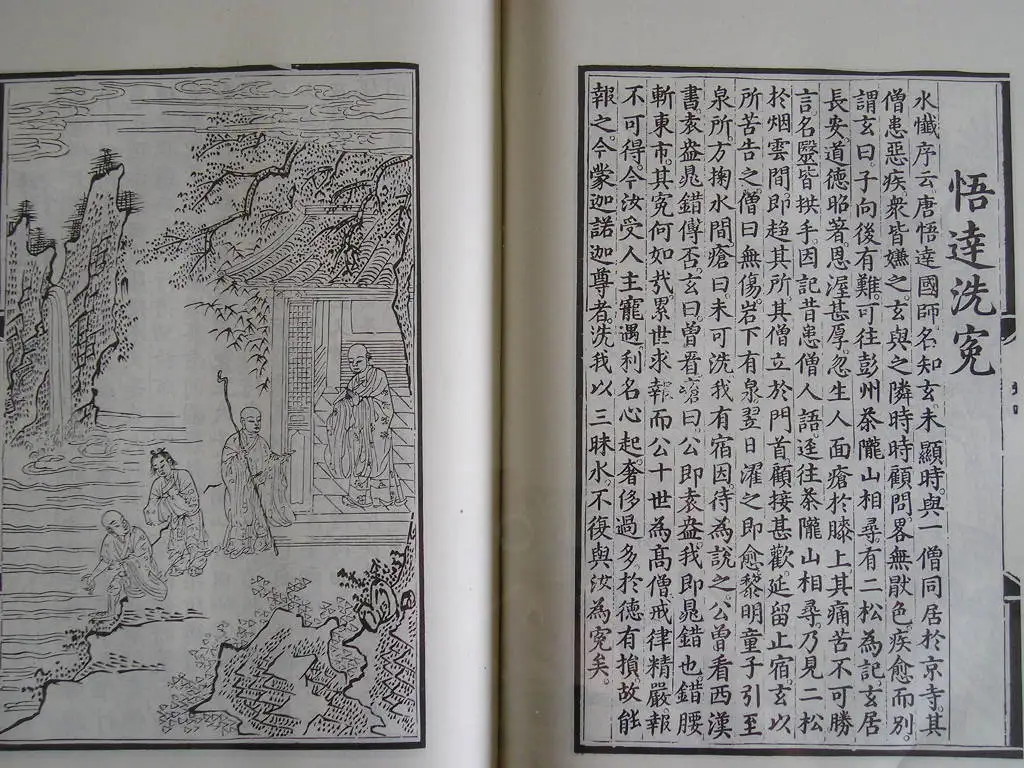 悟達洗冤
水懺序云唐悟達國師名知玄未顯時與一僧同居於京寺其
僧患惡疾衆皆嫌之玄與之隣時時顧問畧無猒色疾愈而別
謂玄曰子向後有難可往彭州茶隴山相尋有二松為記玄居
長安道德昭著恩渥甚厚忽生人面瘡於膝上其痛苦不可勝
言名醫皆拱手因記昔患僧人語逕往茶隴山相尋乃見二松
於烟雲間即趨其所其僧立於門首顧接甚歡延留止宿玄以
所苦告之僧曰無傷岩下有泉翌日濯之即愈黎明童子引至
泉所方掬水間瘡曰未可洗我有宿因待為說之公曾看西漢
書袁盎晁錯傳否玄曰曾看瘡曰公即袁盎我即晁錯也錯腰
斬東市其冤何如哉累世求報而公十世為高僧戒律精嚴報
不可得今汝受人主寵遇利名心起奢侈過多於德有損故能
報之今蒙迦諾迦尊者洗我以三昧水不復與汝為冤矣